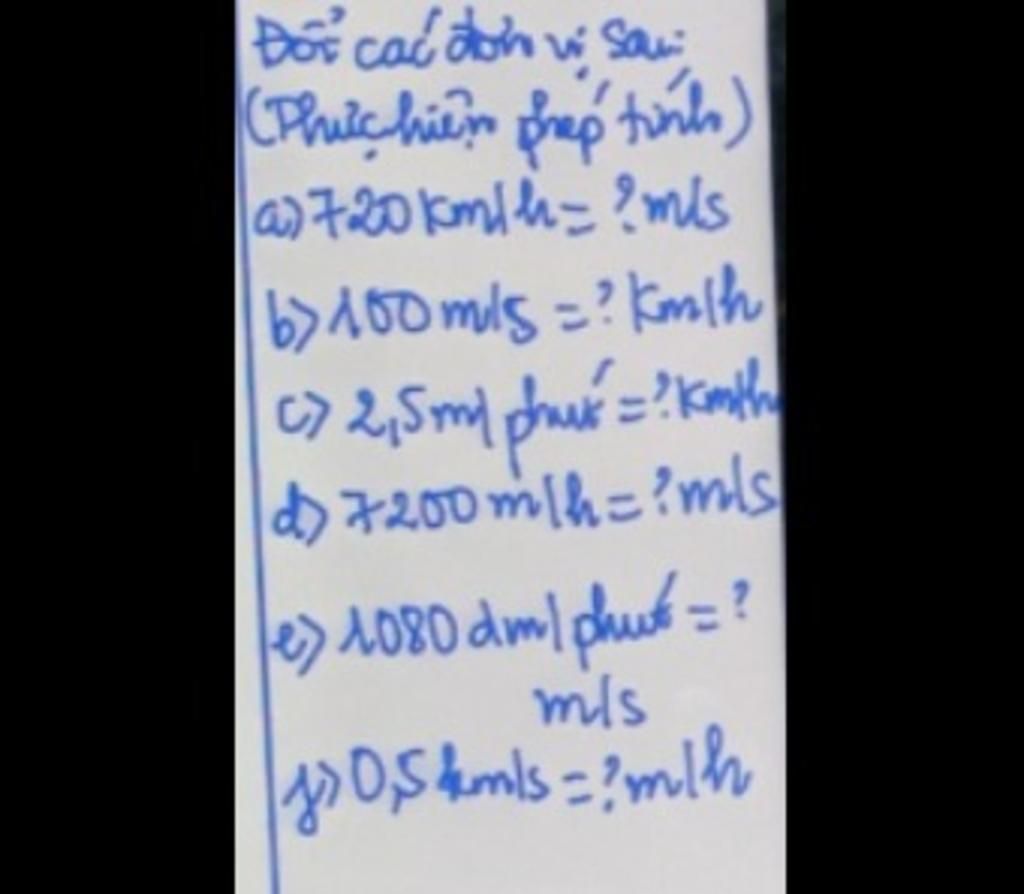 Đổi các đơn vị sau:
(Thực hiện phép tính)
a) 720 km/h = ? m/s
b) 100 m/s = ? Km/h
c) 2,5 m/phút = ? Km/h
d) 7200 m/h = ? m/s
e) 1080 dm/phút = ?
m/s
f) 0,5 km/s = ? m/h